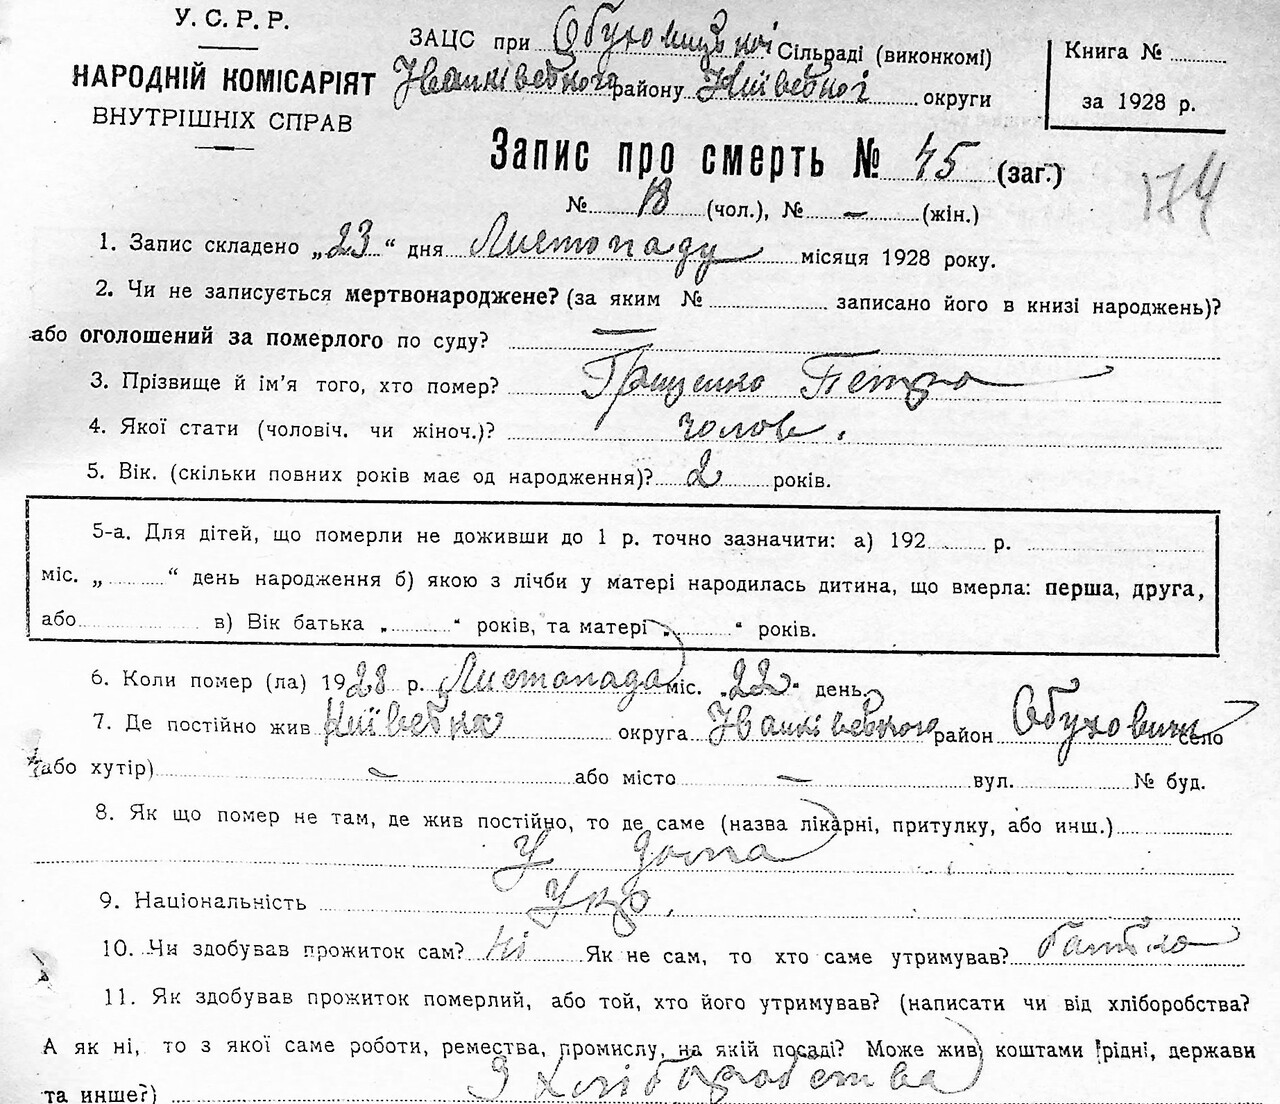 У. С. Р. Р.
НАРОДНІЙ КОМІСАРІЯТ
ВНУТРІШНІХ СПРАВ
ЗАЦС при Обуховицькій Сільраді (виконкомі)
Іванківського району Київської округи
Книга №
за 1928 р.
Запис про смерть № 45 (заг.)
174
№ 18 (чол.), № — (жін.)
1. Запис складено „23“ дня Листопаду місяця 1928 року.
2. Чи не записується мертвонароджене? (за яким № записано його в книзі народжень)?
або оголошений за померлого по суду? —
3. Прізвище й ім'я того, хто помер? Грищенко Петро
4. Якої стати (чоловіч. чи жіноч.)? чолов.
5. Вік. (скільки повних років має од народження)? 2 років.
5-а. Для дітей, що померли не доживши до 1 р. точно зазначити: а) 192 р.
міс. „ “ день народження б) якою з лічби у матері народилась дитина, що вмерла: перша, друга,
або в) Вік батька „ “ років, та матері „ “ років.
6. Коли помер (ла) 1928 р. Листопада міс. „22“ день.
7. Де постійно жив Київська округа Іванківського район Обуховичі село
(або хутір) — або місто — вул. № буд.
8. Як що помер не там, де жив постійно, то де саме (назва лікарні, притулку, або инш.)
У дома
9. Національність Укр.
10. Чи здобував прожиток сам? ні Як не сам, то хто саме утримував? батько
11. Як здобував прожиток померлий, або той, хто його утримував? (написати чи від хліборобства?
А як ні, то з якої саме роботи, ремества, промислу, на якій посаді? Може жив коштами рідні, держави
та инше?) З хліборобства